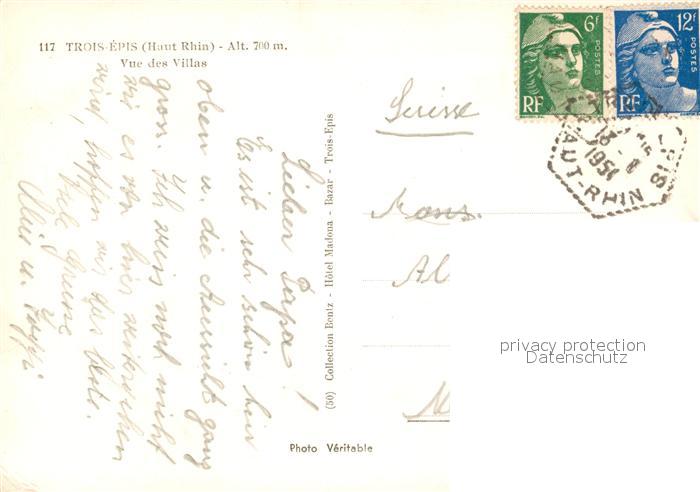 117 TROIS-ÉPIS (Haut Rhin) - Alt. 700 m.
Vue des Villas
6f
POSTES
RF
12f
POSTES
RF
13 - 8
1951
HAUT-RHIN
Suisse
Mons.
Al
M
Lieber Papa!
Es ist sehr schön hier
oben u. die Aussicht ganz
gross. Ich weis noch nicht
wie es von hier weitergehen
wird, hoffen wir das Beste.
Viele Grüsse
(50) Collection Bentz - Hôtel Madona - Bazar - Trois-Epis
Photo Véritable
privacy protection
Datenschutz